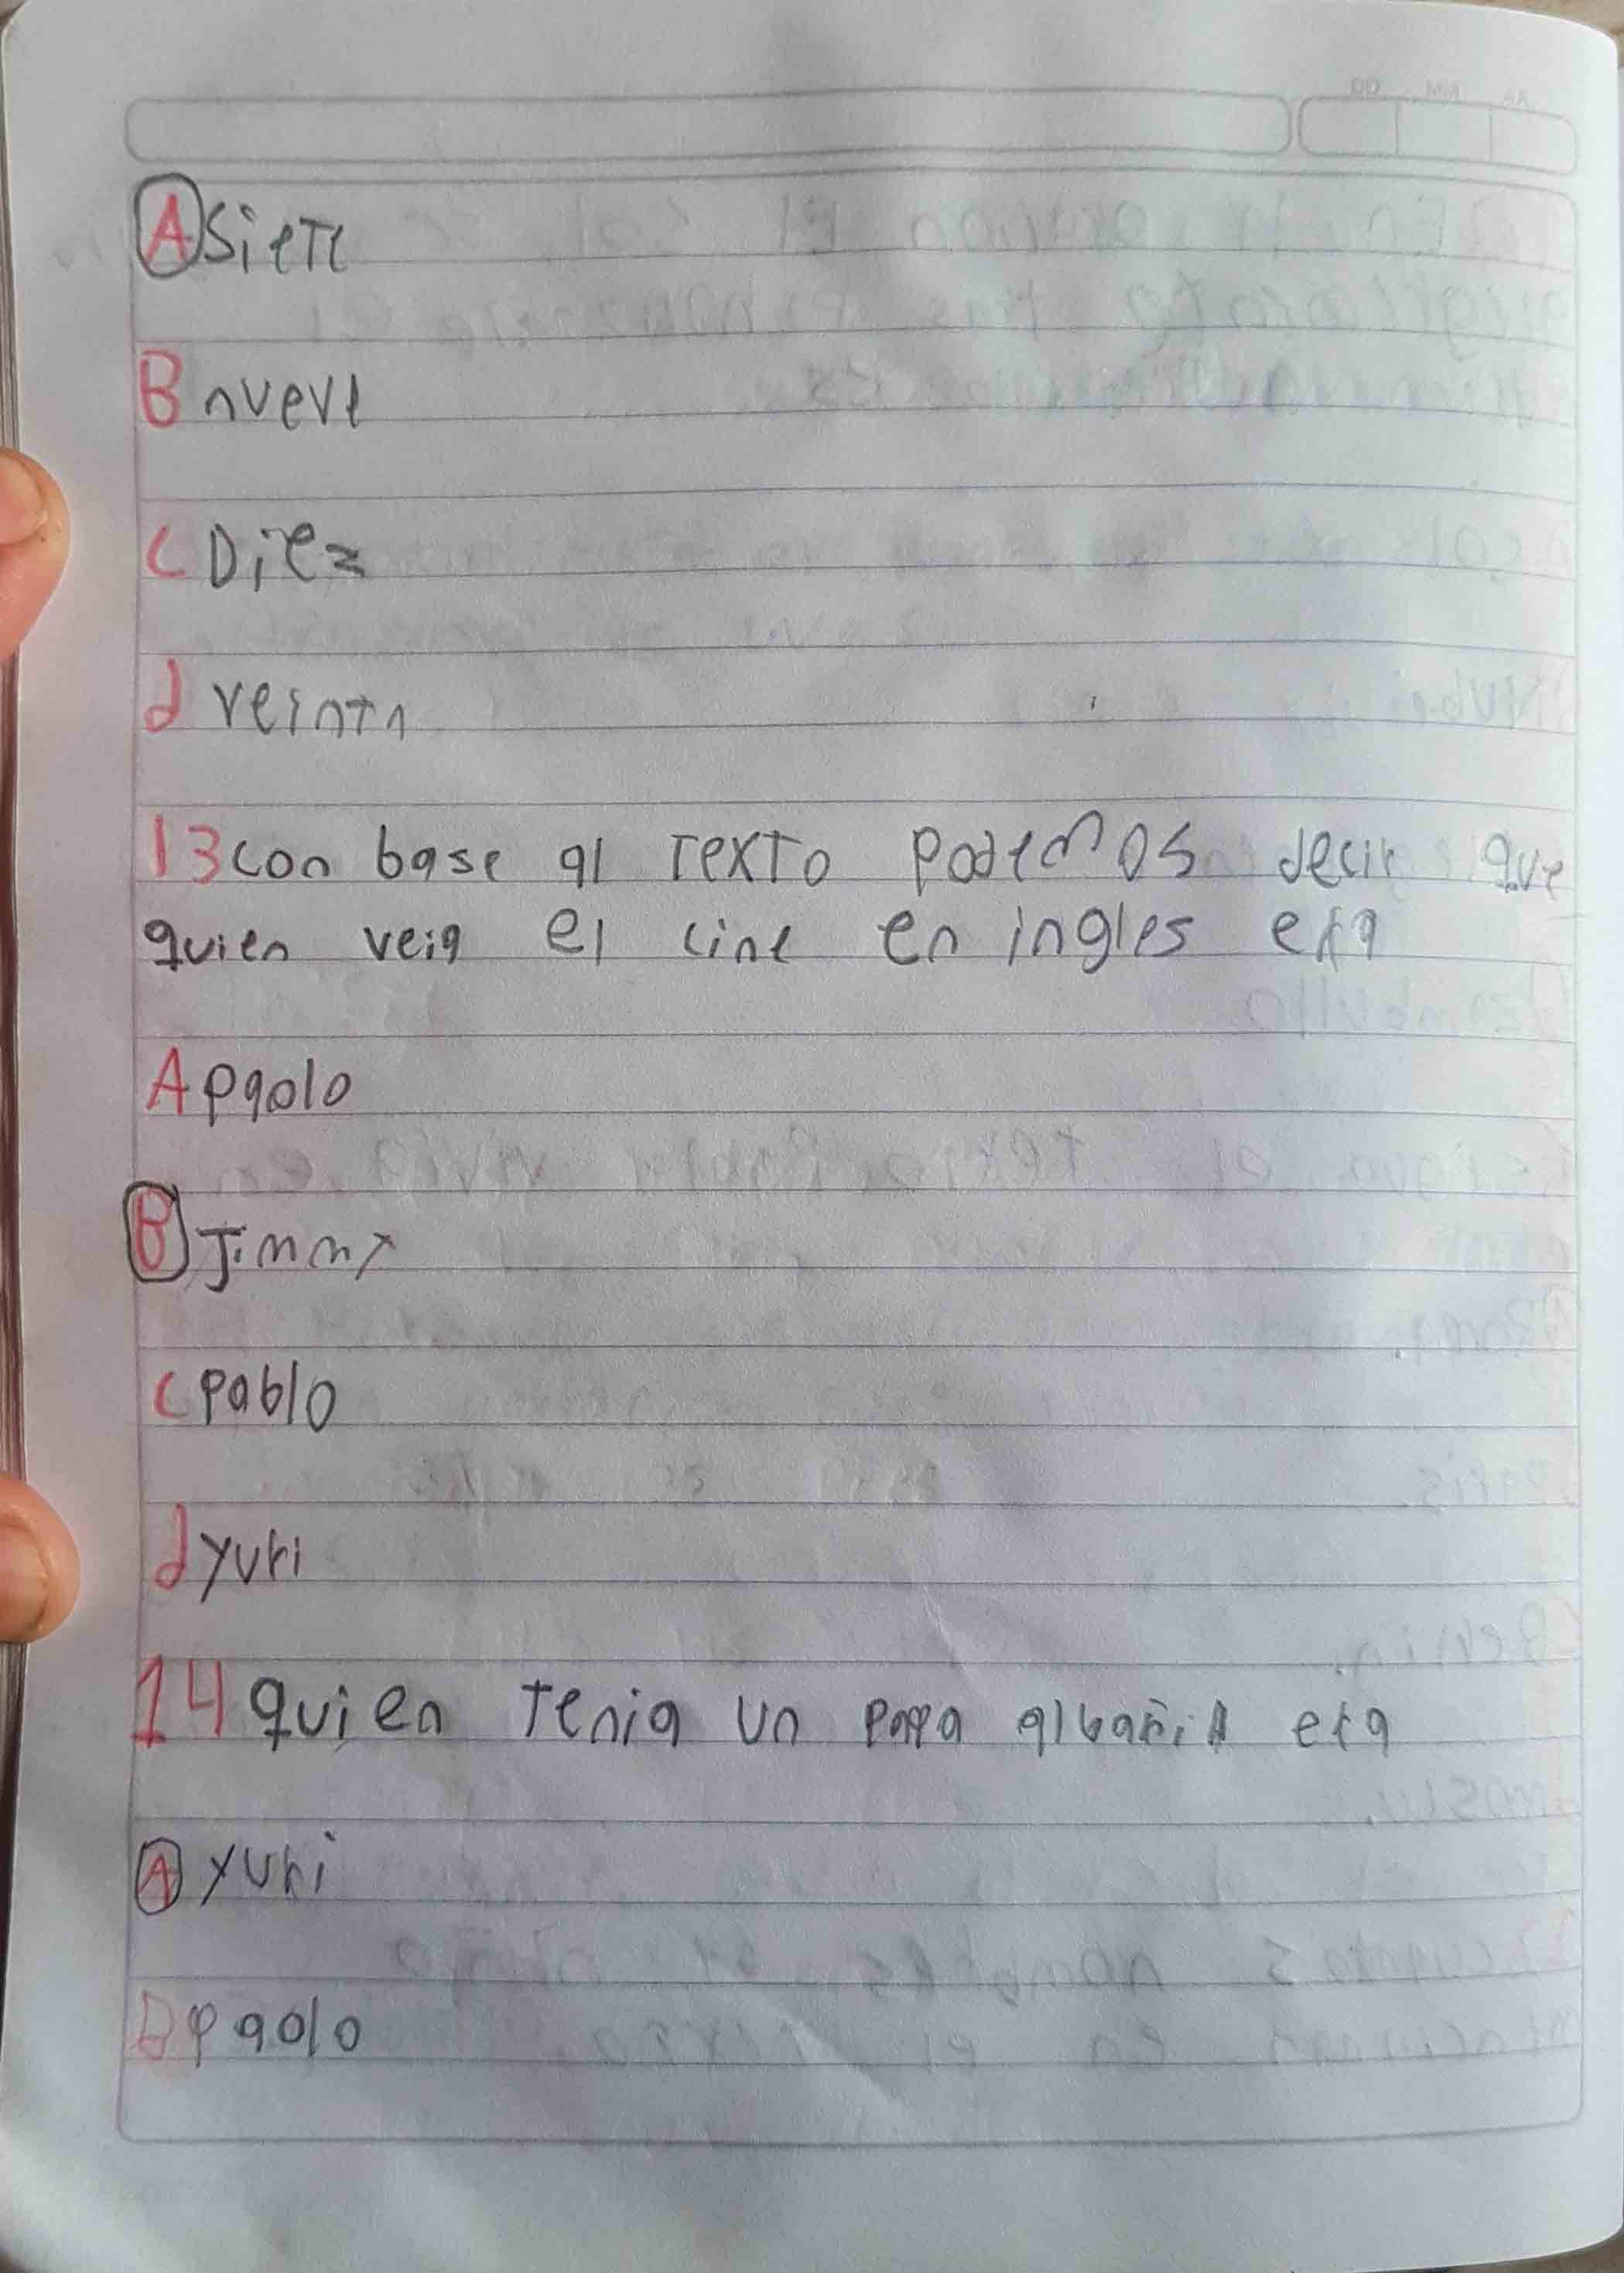 A Siete
B nueve
C Diez
d veinte
13 con base al texto podemos decir que
quien veia el cine en ingles era
A paolo
B Jimmy
C pablo
d yuri
14 quien tenia un papa albañil era
A yuri
B paolo